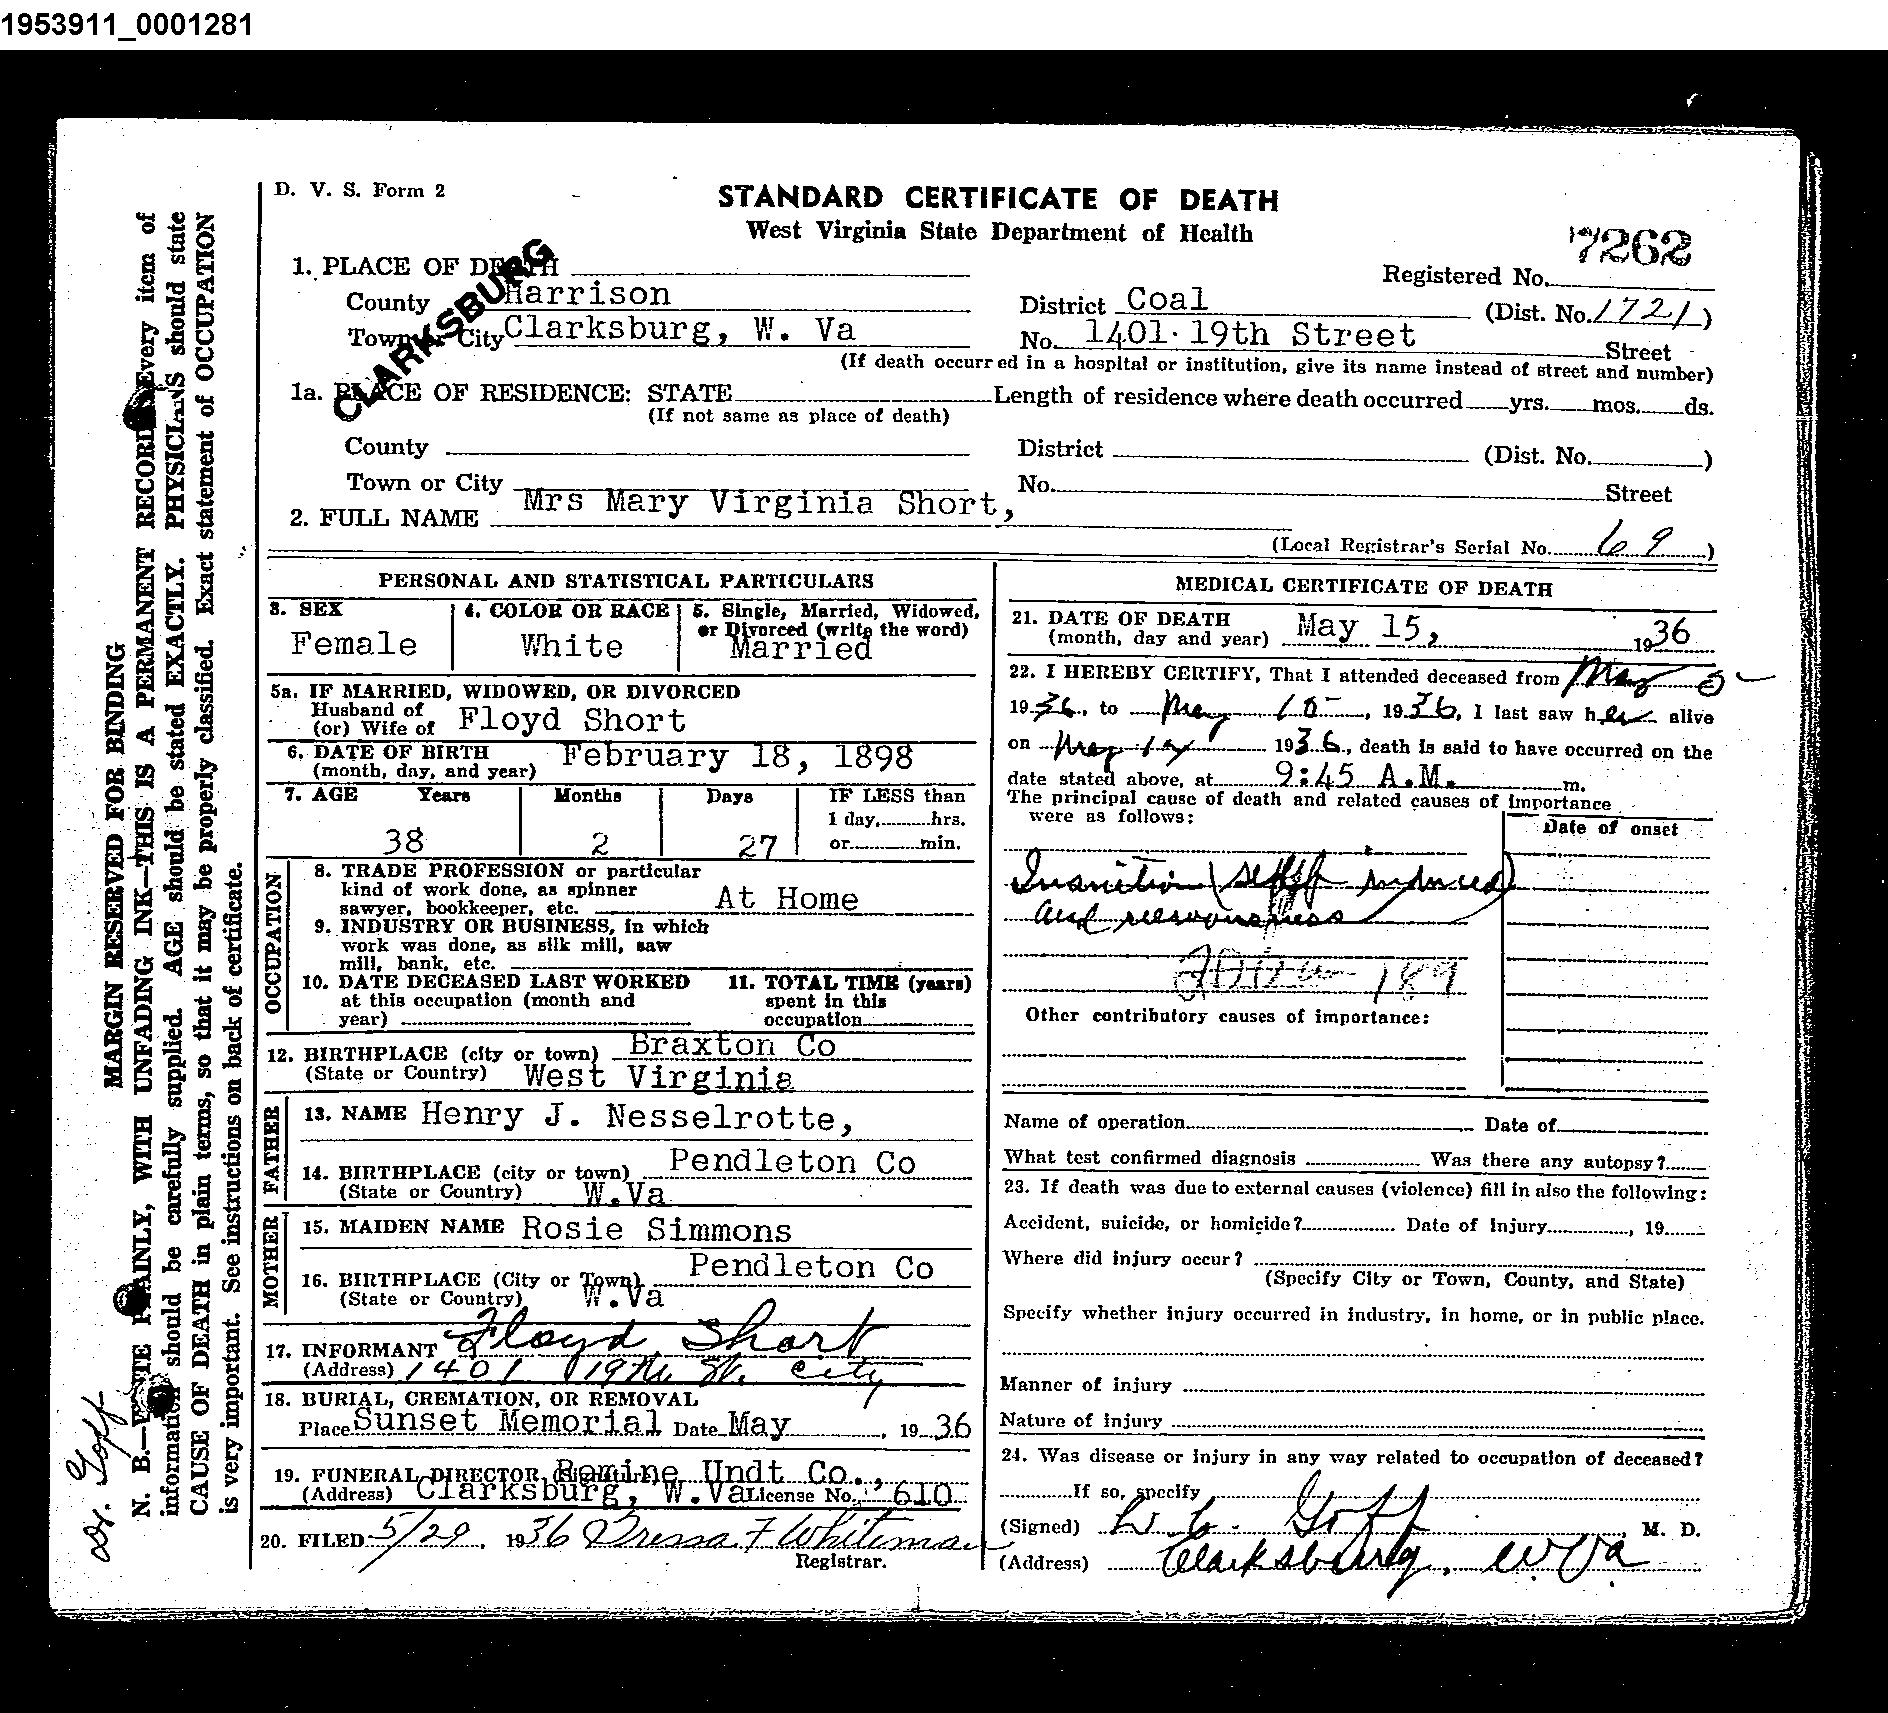 1953911_0001281
D. V. S. Form 2
STANDARD CERTIFICATE OF DEATH
West Virginia State Department of Health
7262
CLARKSBURG
1. PLACE OF DEATH
Registered No.
County Harrison
District Coal (Dist. No. 1721)
Town or City Clarksburg, W. Va
No. 1401 19th Street Street
(If death occurred in a hospital or institution, give its name instead of street and number)
1a. PLACE OF RESIDENCE: STATE
Length of residence where death occurred yrs. mos. ds.
(If not same as place of death)
County
District (Dist. No. )
Town or City
No. Street
2. FULL NAME Mrs Mary Virginia Short,
(Local Registrar's Serial No. 69)
PERSONAL AND STATISTICAL PARTICULARS
3. SEX
Female
4. COLOR OR RACE
White
5. Single, Married, Widowed,
or Divorced (write the word)
Married
5a. IF MARRIED, WIDOWED, OR DIVORCED
Husband of
(or) Wife of Floyd Short
6. DATE OF BIRTH February 18, 1898
(month, day, and year)
7. AGE Years Months Days IF LESS than
1 day, hrs.
38 2 27 or min.
OCCUPATION
8. TRADE PROFESSION or particular
kind of work done, as spinner
sawyer, bookkeeper, etc. At Home
9. INDUSTRY OR BUSINESS, in which
work was done, as silk mill, saw
mill, bank, etc.
10. DATE DECEASED LAST WORKED
at this occupation (month and
year)
11. TOTAL TIME (years)
spent in this
occupation
12. BIRTHPLACE (city or town) Braxton Co
(State or Country) West Virginia
FATHER
13. NAME Henry J. Nesselrotte,
14. BIRTHPLACE (city or town) Pendleton Co
(State or Country) W.Va
MOTHER
15. MAIDEN NAME Rosie Simmons
16. BIRTHPLACE (City or Town) Pendleton Co
(State or Country) W.Va
17. INFORMANT Floyd Short
(Address) 1401 19th St. City
18. BURIAL, CREMATION, OR REMOVAL
Place Sunset Memorial Date May , 19 36
19. FUNERAL DIRECTOR Romine Undt Co.,
(Address) Clarksburg, W.Va License No. 610
20. FILED 5/29, 1936 Whiteman
Registrar.
MEDICAL CERTIFICATE OF DEATH
21. DATE OF DEATH May 15, 1936
(month, day and year)
22. I HEREBY CERTIFY, That I attended deceased from May
1936, to May 15, 1936, I last saw her alive
on May 14 1936, death is said to have occurred on the
date stated above, at 9:45 A.M. m.
The principal cause of death and related causes of importance
were as follows:
Date of onset
Inanition (self induced)
and nervousness
189
Other contributory causes of importance:
Name of operation Date of
What test confirmed diagnosis Was there any autopsy?
23. If death was due to external causes (violence) fill in also the following:
Accident, suicide, or homicide? Date of injury , 19
Where did injury occur?
(Specify City or Town, County, and State)
Specify whether injury occurred in industry, in home, or in public place.
Manner of injury
Nature of injury
24. Was disease or injury in any way related to occupation of deceased?
If so, specify
(Signed) Goff, M. D.
(Address) Clarksburg, W. Va
MARGIN RESERVED FOR BINDING
N. B.—WRITE PLAINLY, WITH UNFADING INK—THIS IS A PERMANENT RECORD. Every item of
information should be carefully supplied. AGE should be stated EXACTLY. PHYSICIANS should state
CAUSE OF DEATH in plain terms, so that it may be properly classified. Exact statement of OCCUPATION
is very important. See instructions on back of certificate.
Dr. Goff